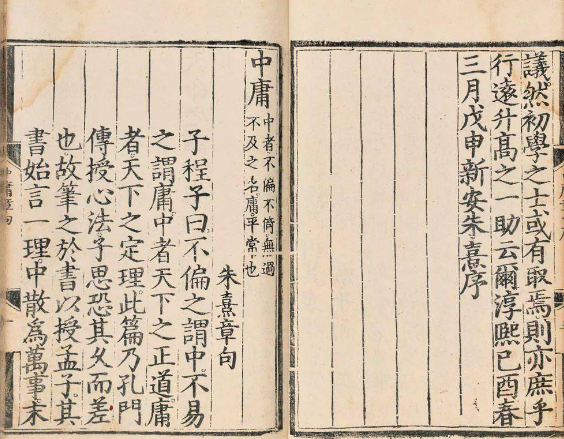 議然初學之士或有取焉則亦庶乎
行遠升髙之一助云爾淳熈己酉春
三月戊申新安朱熹序
中庸
中者不偏不倚無過
不及之名庸平常也
朱熹章句
子程子曰不偏之謂中不易
之謂庸中者天下之正道庸
者天下之定理此篇乃孔門
傳授心法子思恐其久而差
也故筆之於書以授孟子其
書始言一理中散為萬事末